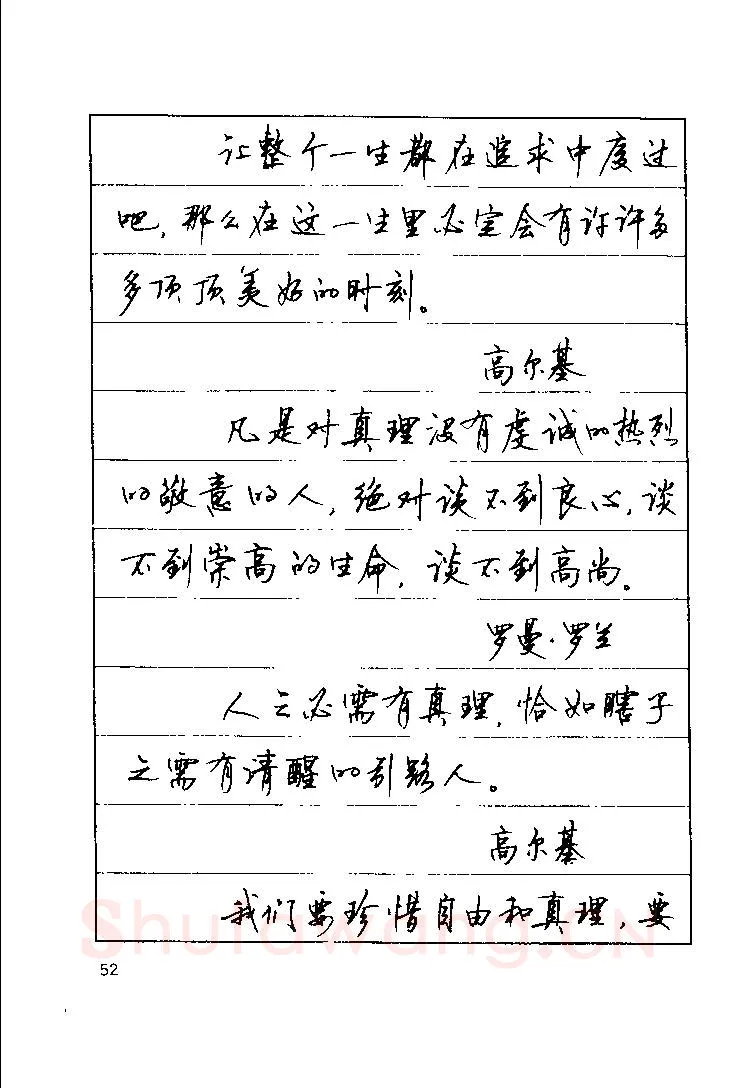 让整个一生都在追求中度过
吧,那么在这一生里必定会有许许多
多顶顶美好的时刻。
高尔基
凡是对真理没有虔诚的热烈
的敬意的人,绝对谈不到良心,谈
不到崇高的生命,谈不到高尚。
罗曼·罗兰
人之必需有真理,恰如瞎子
之需有清醒的引路人。
高尔基
我们要珍惜自由和真理,要
Shufawang.CN
52